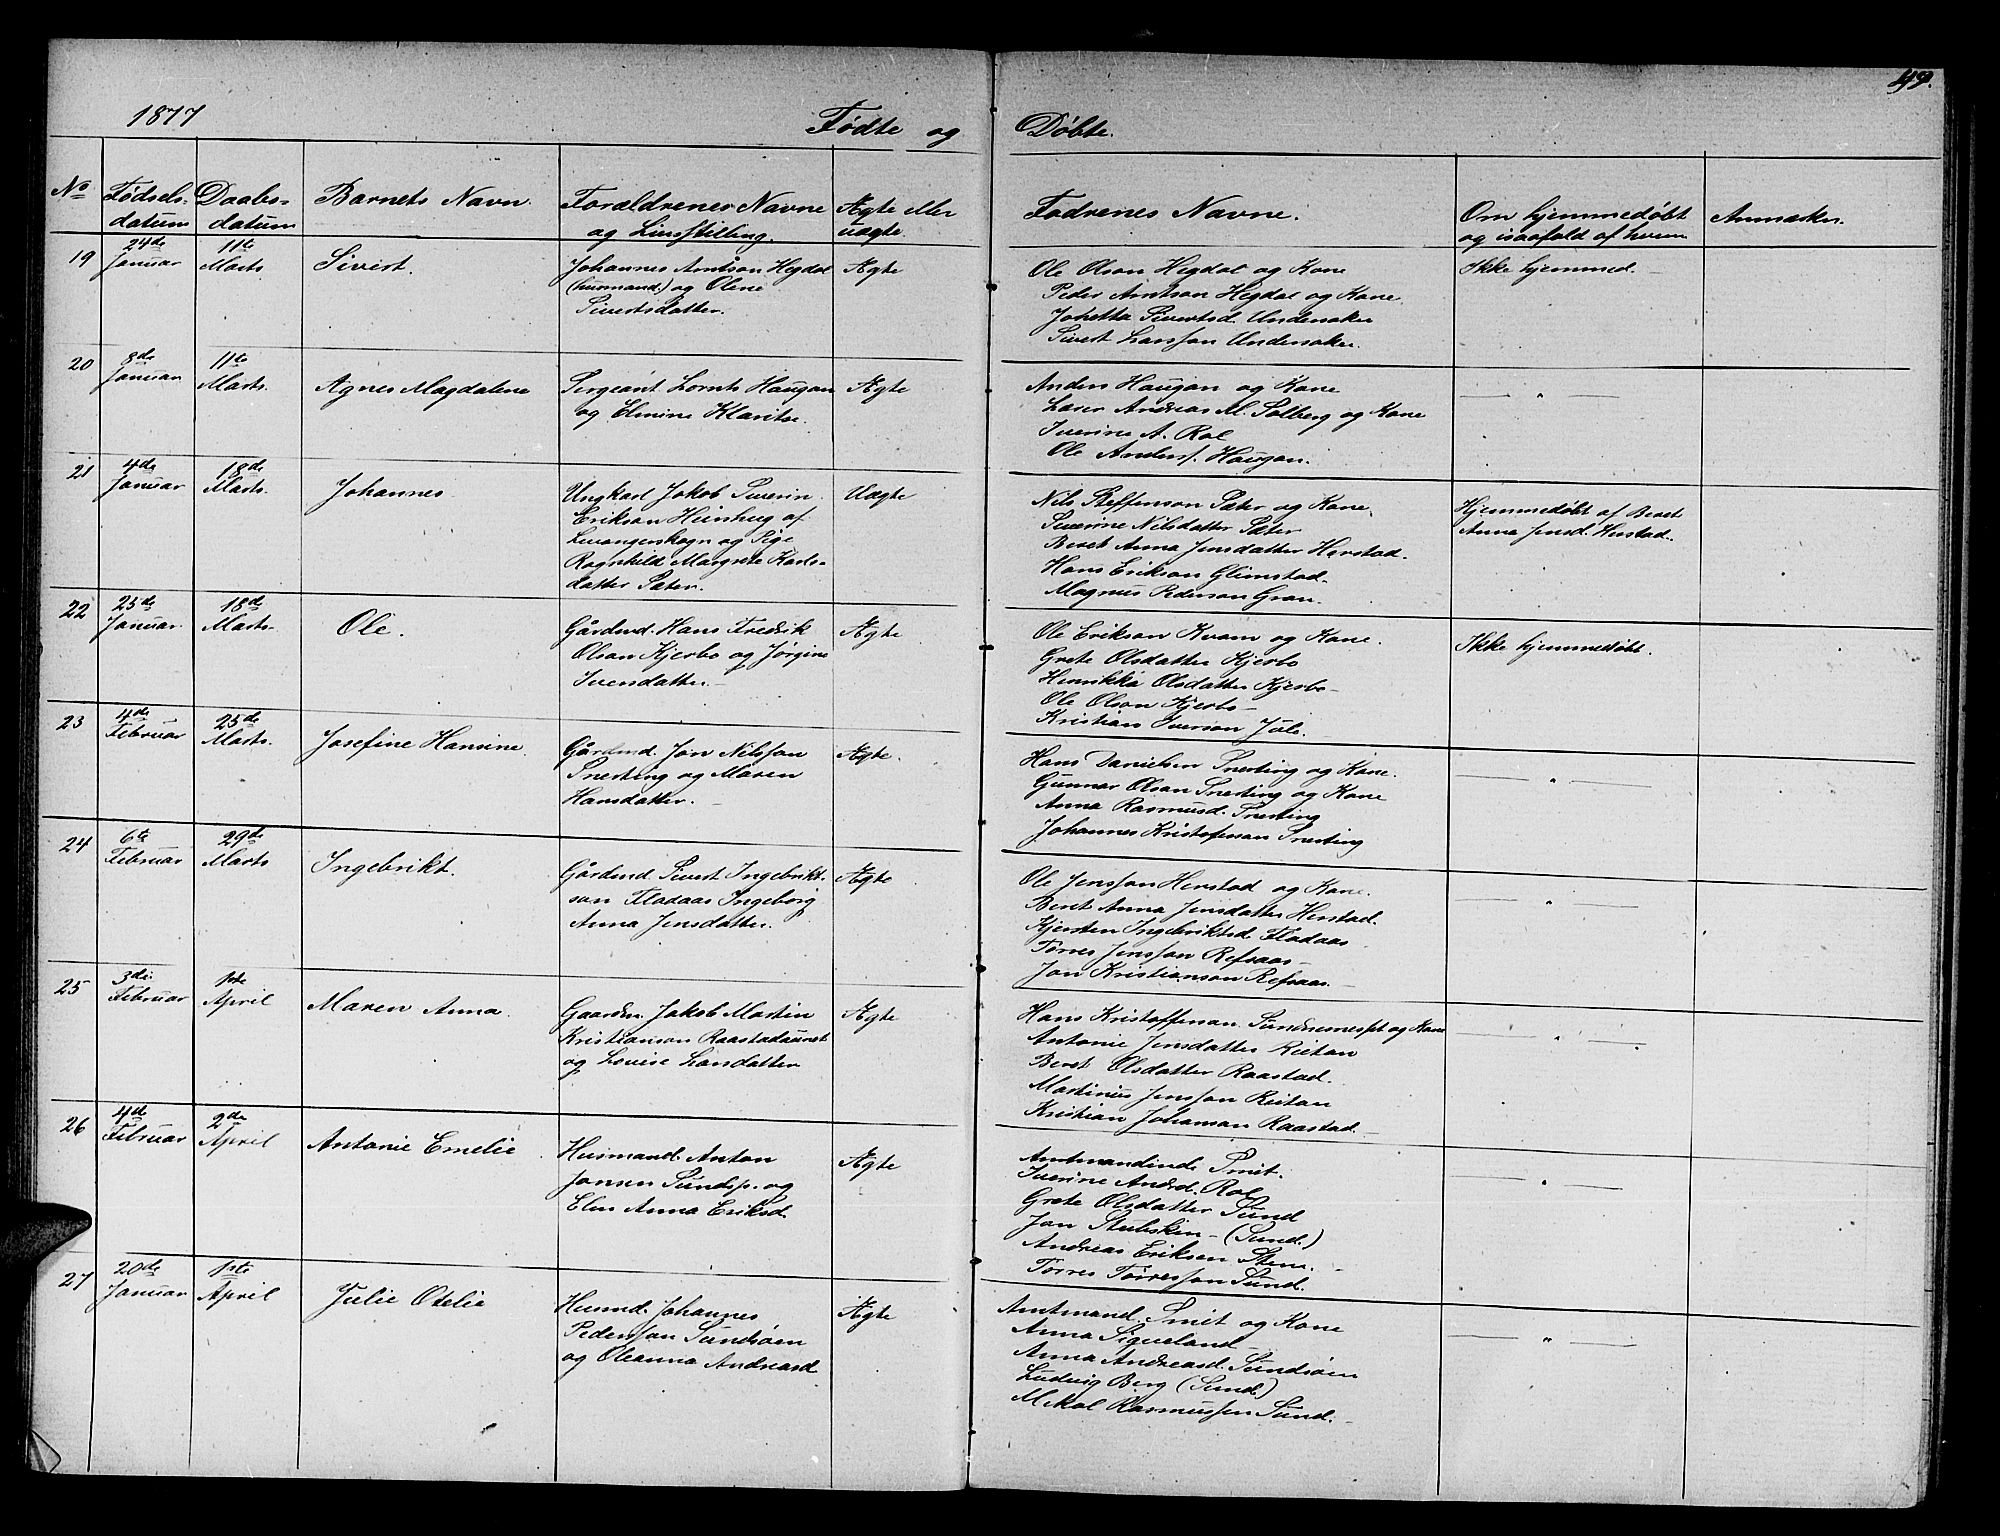 49.
1877
Fødte og Døbte.
No
Fødsels-
datum
Daabs-
datum
Barnets Navn.
Forældrenes Navne
og Livsstilling.
Ægte eller
uægte.
Fadrenes Navne.
Om hjemmedøbt
og isaafald af hvem
Anmærkn.
19
24de
Januar
11te
Marts.
Sivert.
Johannes Arntson Hegdal
(husmand.) og Olene
Sivertsdatter.
Ægte
Ole Olson Hegdal og Kone
Peder Arntson Hegdal og Kone.
Johetta Sivertsd. Undersaker
Sivert Larsson Undersaker.
Ikke hjemmed.
20
8de
Januar
11te
Marts.
Agnes Magdalene
Sergeant Lornts Haugan
og Elmine Klarite.
Ægte
Anders Haugan og Kone
Lærer Andreas M. Solberg og Kone
Iverine A. Rol
Ole Anders. Haugan.
— " —
21
4de
Januar
18de
Marts.
Johannes
Ungkarl Jakob Severin
Erikson Heinhug af
Levangerskogn og Pige
Ragnhild Margrete Karls-
datter Sæter.
Uægte
Nils Steffenson Sæter og Kone.
Severine Nilsdatter Sæter
Beret Anna Jensdatter Herstad.
Hans Erikson Glimstad.
Magnus Pederson Gran.
Hjemmedøbt af Beret
Anna Jensd. Herstad.
22
25de
Januar.
18de
Marts.
Ole.
Gårdmd. Hans Fredrik
Olson Kjerbo og Jørgine
Iversdatter.
Ægte
Ole Erikson Kvam og Kone.
Grete Olsdatter Kjerbo
Henrikka Olsdatter Kjerbo
Ole Olson Kjerbo
Kristian Iverson Jule.
Ikke hjemmedøbt.
23
4de
Februar
25de
Marts.
Josefine Hansine.
Gårdmd. Jon Nilsson
Snerting og Maren
Hansdatter.
Ægte.
Hans Danielsen Snerting og Kone.
Gunnar Olson Snerting og Kone
Anna Rasmusd. Snerting
Johannes Kristofenson Snerting
— " —
24
6te
Februar
29de
Marts
Ingebrikt.
Gårdmd. Sivert Ingebrikt-
son Fladaas Ingeborg
Anna Jensdatter.
Ægte
Ole Jensson Herstad og Kone.
Beret Anna Jensdatter Herstad.
Kjersten Ingebriktsd. Fladaas
Torres Jensson Refsaas
Jon Kristianson Refsaas.
— " —
25
3die
Februar
1ste
April
Maren Anna.
Gaardm. Jakob Martin
Kristianson Raastadaunet
og Lovise Larsdatter
Ægte
Hans Kristoffenson Sundnernespt og Kone
Antonie Jensdatter Reitan
Beret Olsdatter Raastad.
Martinus Jensson Reitan
Kristian Johanson Raastad.
— " —
26
4de
Februar
2de
April
Antonie Emelie
Husmand. Anton
Jansen Sundsp. og
Elen Anna Eriksd.
Ægte
Amtmandinde Smit.
Iverine Andrd. Rol
Grete Olsdatter Sund
Jon Stubskin (Sund.)
Andreas Eriksen Stene.
Torres Torresson Sund.
— " —
27
20de
Januar
1ste
April
Julie Otelie
Husmd. Johannes
Pedersson Sundsøen
og Oleanna Andreasd
Ægte
Amtmand. Smit og Kone
Anna Sigveland
Anna Andreasd. Sundsøen
Ludvig Berg (Sund.)
Mikal Rasmussen Sund.
— " —